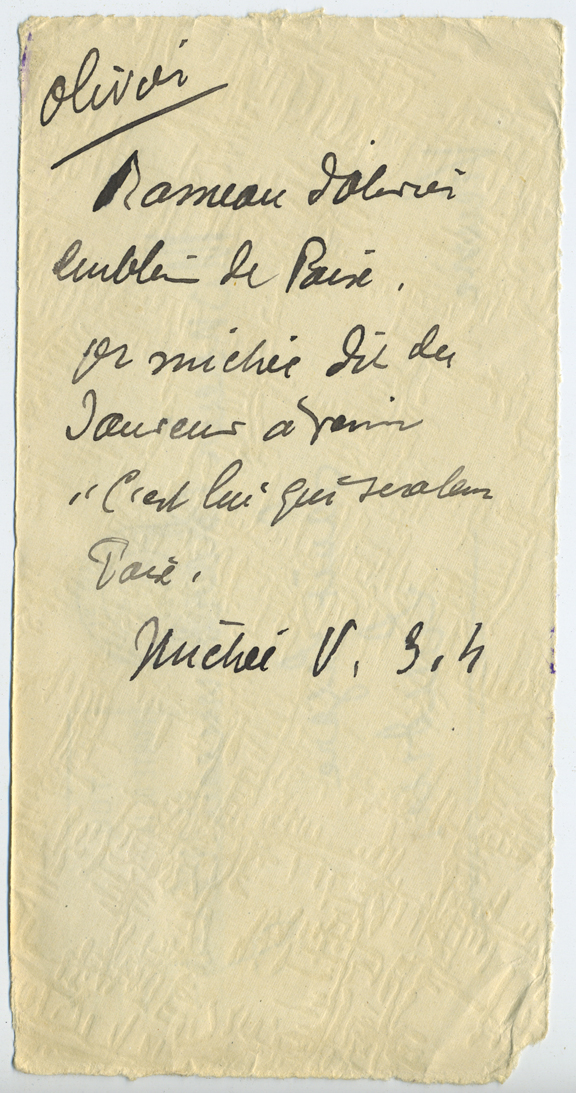 olivier
Rameau d'olivier
emblème de Paix.
Or Michée dit du
Sauveur à venir
"C'est lui qui sera leur
Paix.
Michée V. 3.4